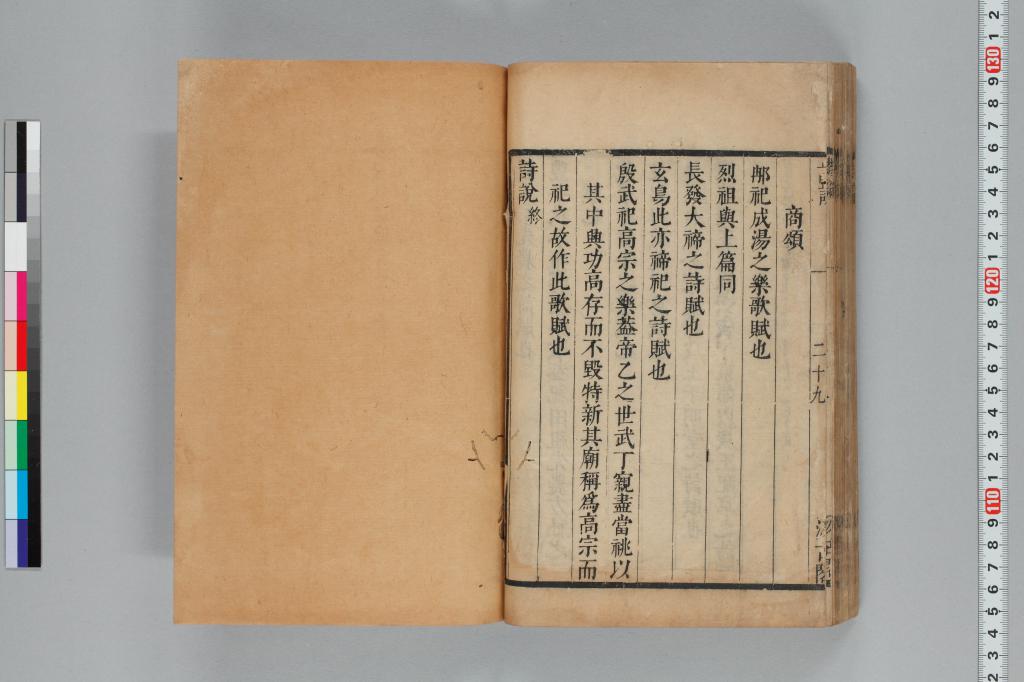 商頌
那祀成湯之樂歌賦也
烈祖與上篇同
長發大禘之詩賦也
玄鳥此亦禘祀之詩賦也
殷武祀高宗之樂葢帝乙之世武丁親盡當祧以
其中興功高存而不毀特新其廟稱爲高宗而
祀之故作此歌賦也
詩說終
二十九
2
1
130
9
8
7
6
5
4
3
2
1
120
9
8
7
6
5
4
3
2
1
110
9
8
7
6
5
4
3
2